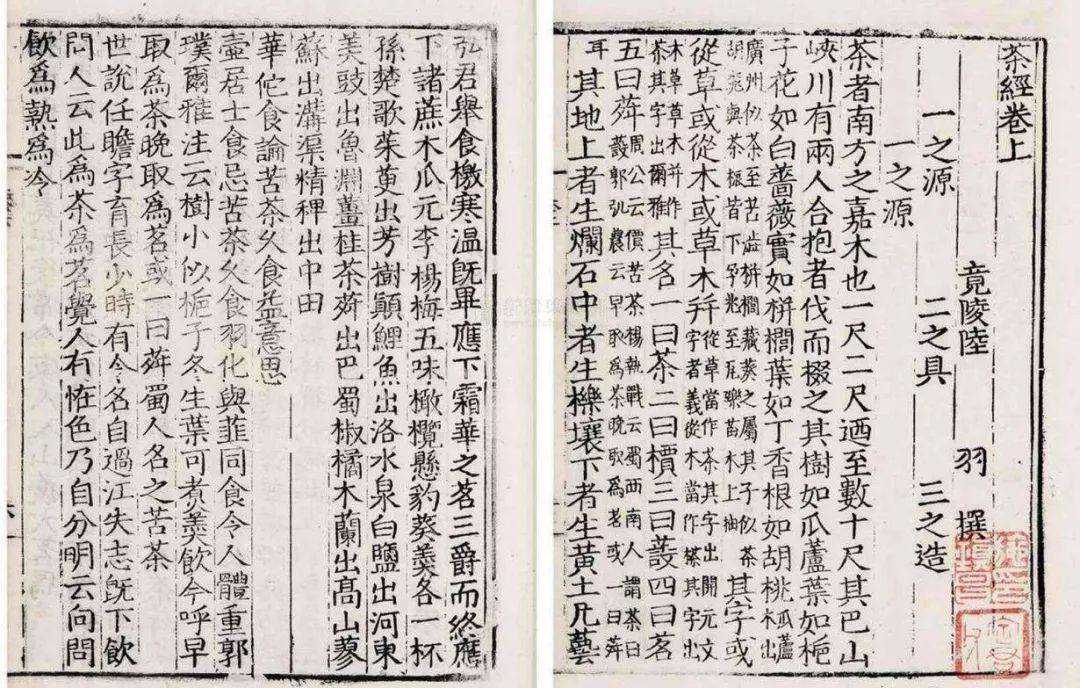 茶經卷上
竟陵陸 羽 撰
一之源 二之具 三之造
一之源
茶者南方之嘉木也一尺二尺迺至數十尺其巴山
峽川有兩人合抱者伐而掇之其樹如瓜蘆葉如梔
子花如白薔薇實如栟櫚葉如丁香根如胡桃瓜蘆木出
廣州似茶至苦澁栟櫚蒲葵之屬其子似茶胡桃與茶根皆下孕兆至瓦礫苗木上抽其字或
從草或從木或草木并從草當作茶其字出開元文字者義從木當作㮆其字出
本草草木并作荼其字出爾雅其名一曰茶二曰檟三曰蔎四曰茗
五曰荈周公云檟苦荼楊執戟云蜀西南人謂茶曰蔎郭弘農云早取爲茶晚取爲茗或一曰荈
耳其地上者生爛石中者生櫟壤下者生黃土凡藝
弘君舉食檄寒溫既畢應下霜華之茗三爵而終應
下諸蔗木瓜元李楊梅五味橄欖懸豹葵羹各一杯
孫楚歌茱萸出芳樹顛鯉魚出洛水泉白鹽出河東
美豉出魯淵薑桂茶荈出巴蜀椒橘木蘭出高山蓼
蘇出溝渠精稗出中田
華佗食論苦茶久食益意思
壺居士食忌苦茶久食羽化與韮同食令人體重郭
璞爾雅注云樹小似梔子冬生葉可煮羹飲今呼早
取爲茶晚取爲茗或一曰荈蜀人名之苦茶
世說任瞻字育長少時有令名自過江失志既下飲
問人云此爲茶爲茗覺人有恠色乃自分明云向問
飲爲熱爲冷